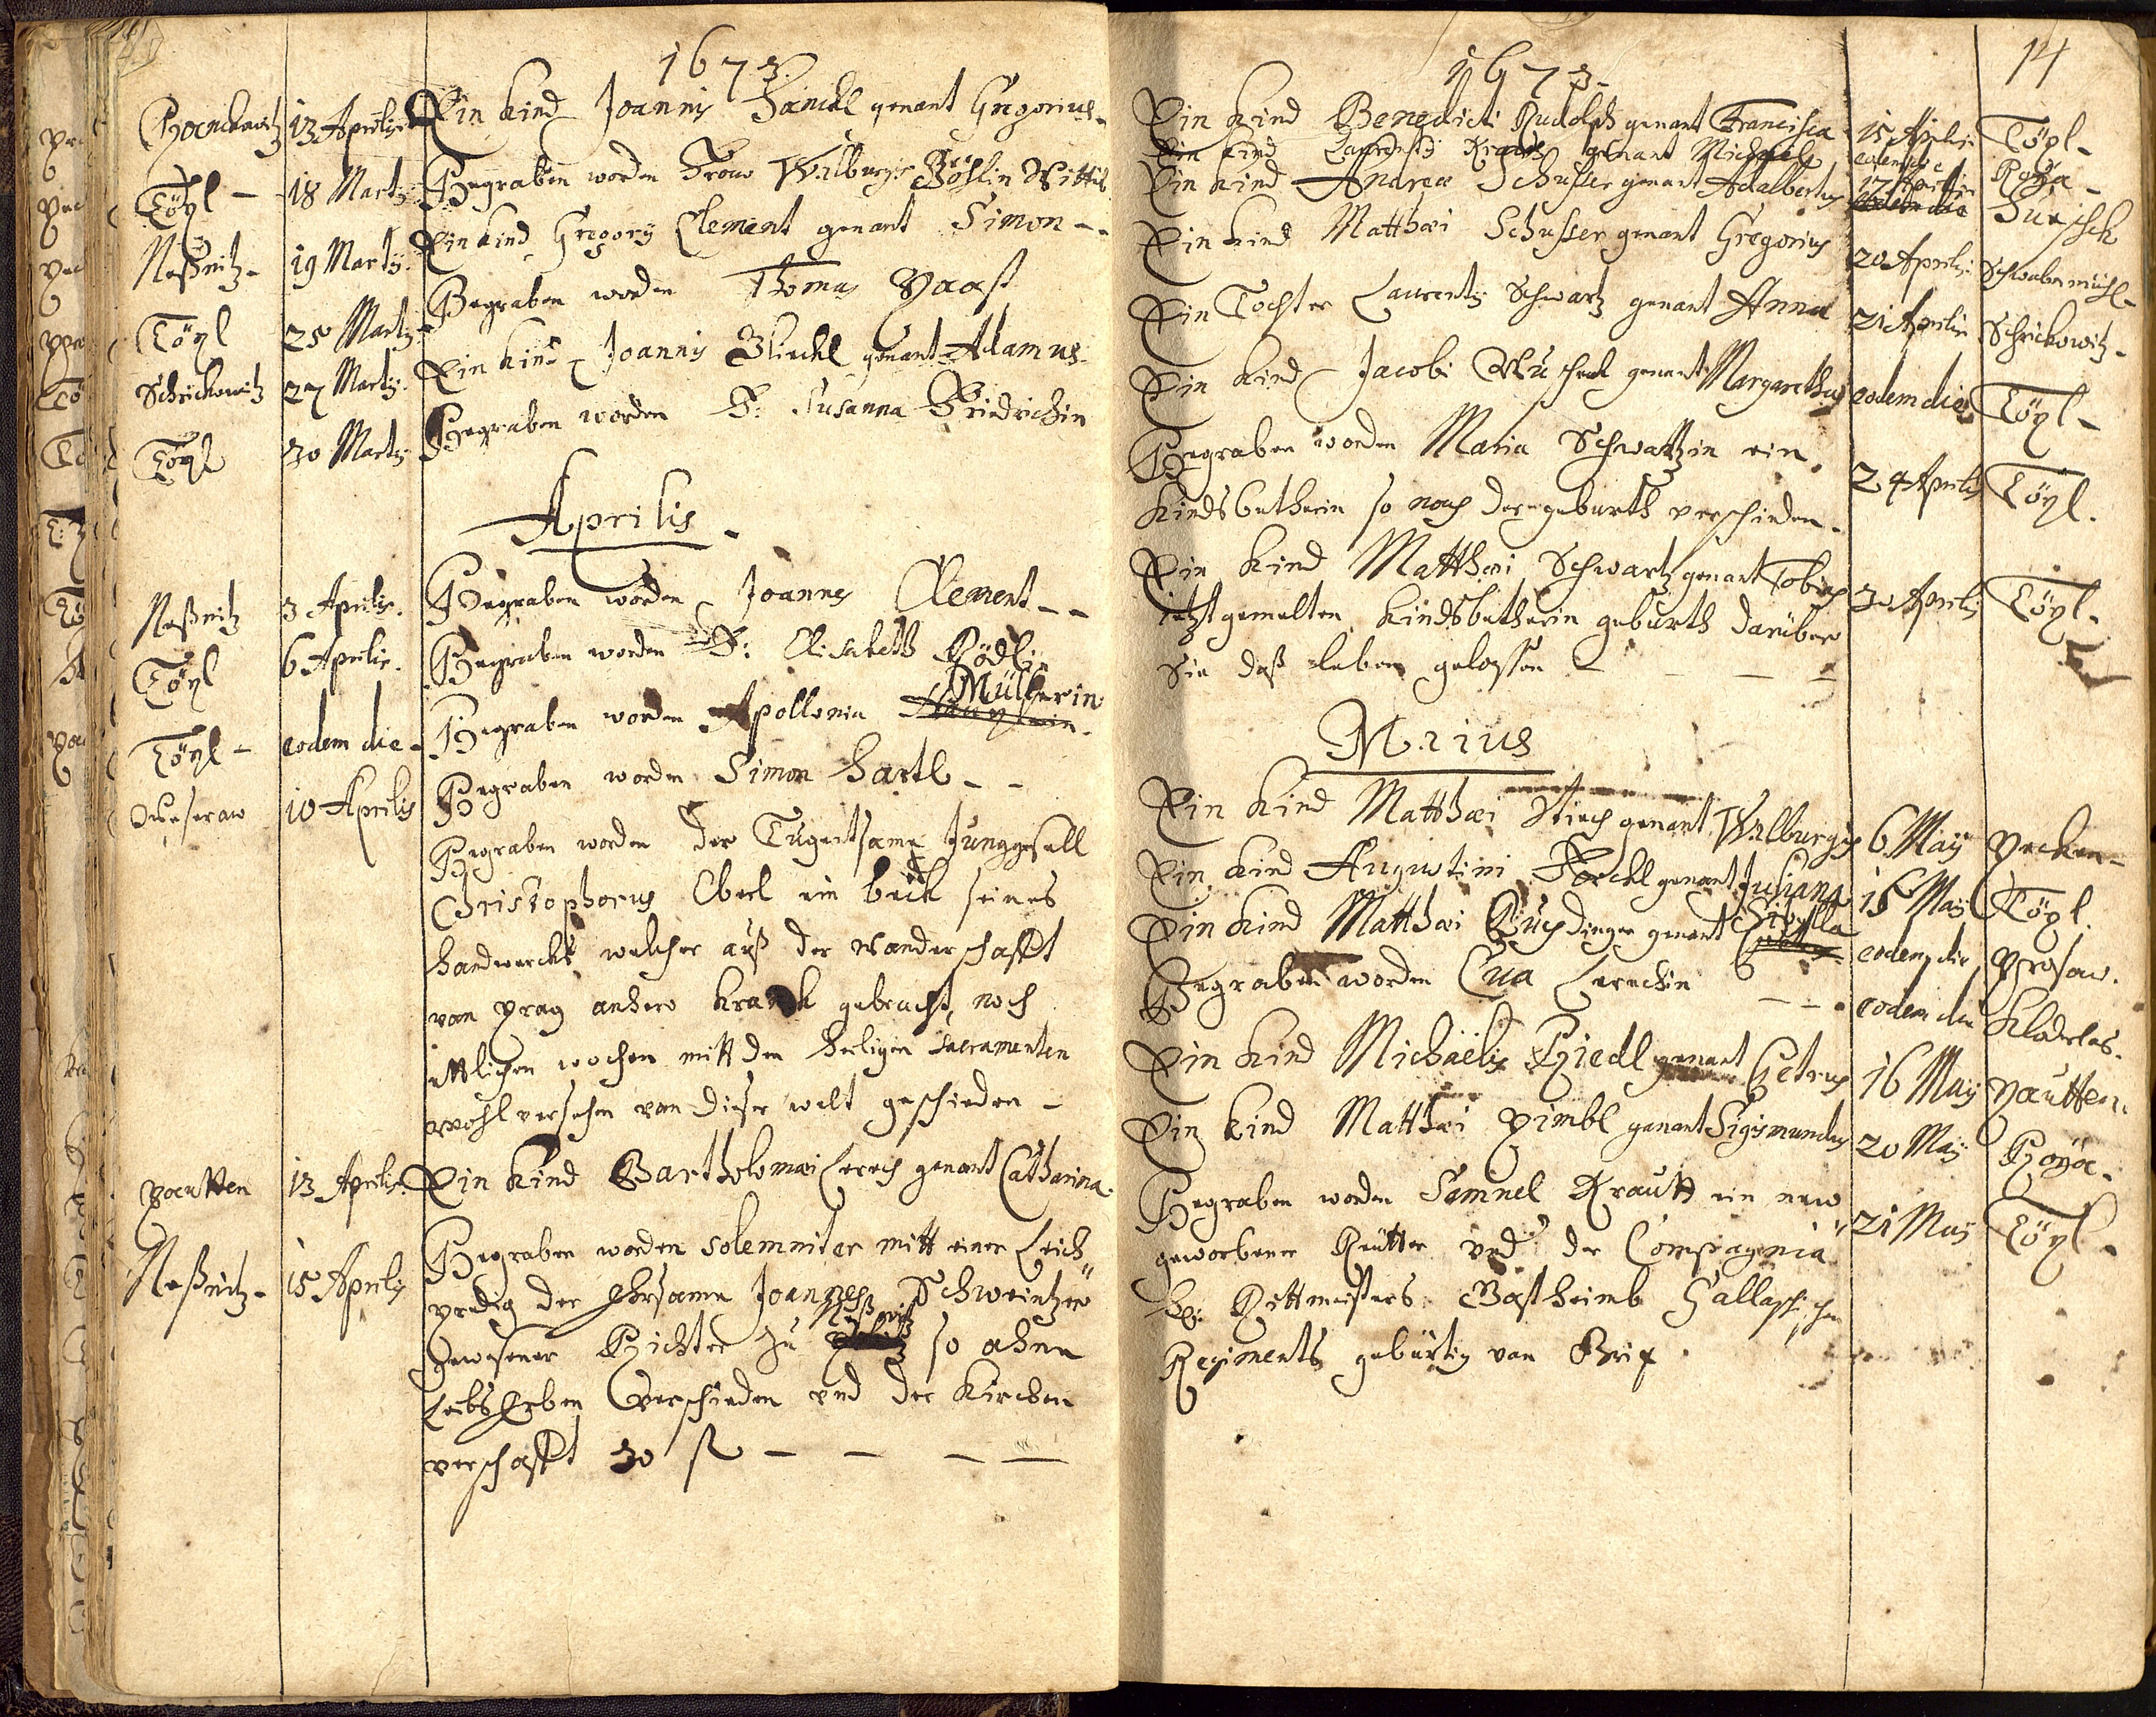 1673.
13 Aprilis Ein Kind Joannis genant Gregorius
Töpl - 18 Martij Begraben worden Fraw Walburgis Wittib
Neßnitz - 19 Martij. Ein Kind Gregorij Clement genant Simon -
Töpl 25 Martij Begraben worden Thomas
Schrickowitz 27 Martij. Ein Kind Joannis genant Adamus
Töpl 30 Martij Begraben worden F: Susanna Fridrichin
Aprilis.
Neßnitz 3 Aprilis. Begraben worden Joannes Clement - -
Töpl 6 Aprilis. Begraben worden F: Elisabeth Rödlin
Müllnerin
Töpl - eodem die - Begraben worden Apollonia
10 Aprilis Begraben worden Simon Hartl - -
Begraben worden der Tugentsame Junggesell
Christophorus ein beck seines
handwercks welcher auß der wanderschafft
von Prag anhero kranck gebracht, noch
ettlichen wochen mitt den heiligen Sacramenten
wohl versehen von dieser welt geschieden -
Pautten 13 Aprilis. Ein Kind Bartholomæi Lerch genant Catharina.
Neßnitz - 15 Aprilis Begraben worden solemniter mitt einer Leich"
predig der Ehrsame Joannes Schweintzer
Neßnitz
gewesener Richter zu so ohne
LeibsErben verschieden und der Kirchen
verschafft 30 fl - - - -
14
1673.
Ein Kind Benedicti Rudolph genant Francisca 15 Aprilis Töpl -
Ein Kind Laurentij Kraus genant Michael eodem die Roya -
Ein Kind Andreæ Schusser genant Adalbertus 17 Aprilis
Ein Kind Matthæi Schusser genant Gregorius 20 Aprilis Schwabenmühl -
Ein Tochter Laurentij Schwartz genant Anna 21 Aprilis Schrickowitz -
Ein Kind Jacobi genant Margaretha eodem die Töpl -
Begraben worden Maria Schwartzin ein
Kindsbetherin so nach der geburth verschieden. 24 Aprilis Töpl.
Ein Kind Matthæi Schwartz genant Tobias 30 Aprilis Töpl.
ietzt gemelten Kindsbetherin geburth darüber
Sie daß leben gelassen - - -
Maius
Ein Kind Matthæi genant Walburgis 6 Maij
Ein Kind Augustini genant Juliana 15 Maij Töpl.
Sibylla
Ein Kind Matthæi genant eodem die Prosau.
Begraben worden Eva Lerchin - - eodem die Kladerlas.
Ein Kind Michaëlis Riedl genant Petrus 16 Maij Pautten.
Ein Kind Matthæi Pimbl genant Sigismundus 20 Maij Roya.
Begraben worden Samuel Krautt ein new
geworbener Reutter und der Compagnia 21 Maij Töpl.
H: Rittmeisters Bastheimb Gallasischen
Regiments gebürtig von Brix.